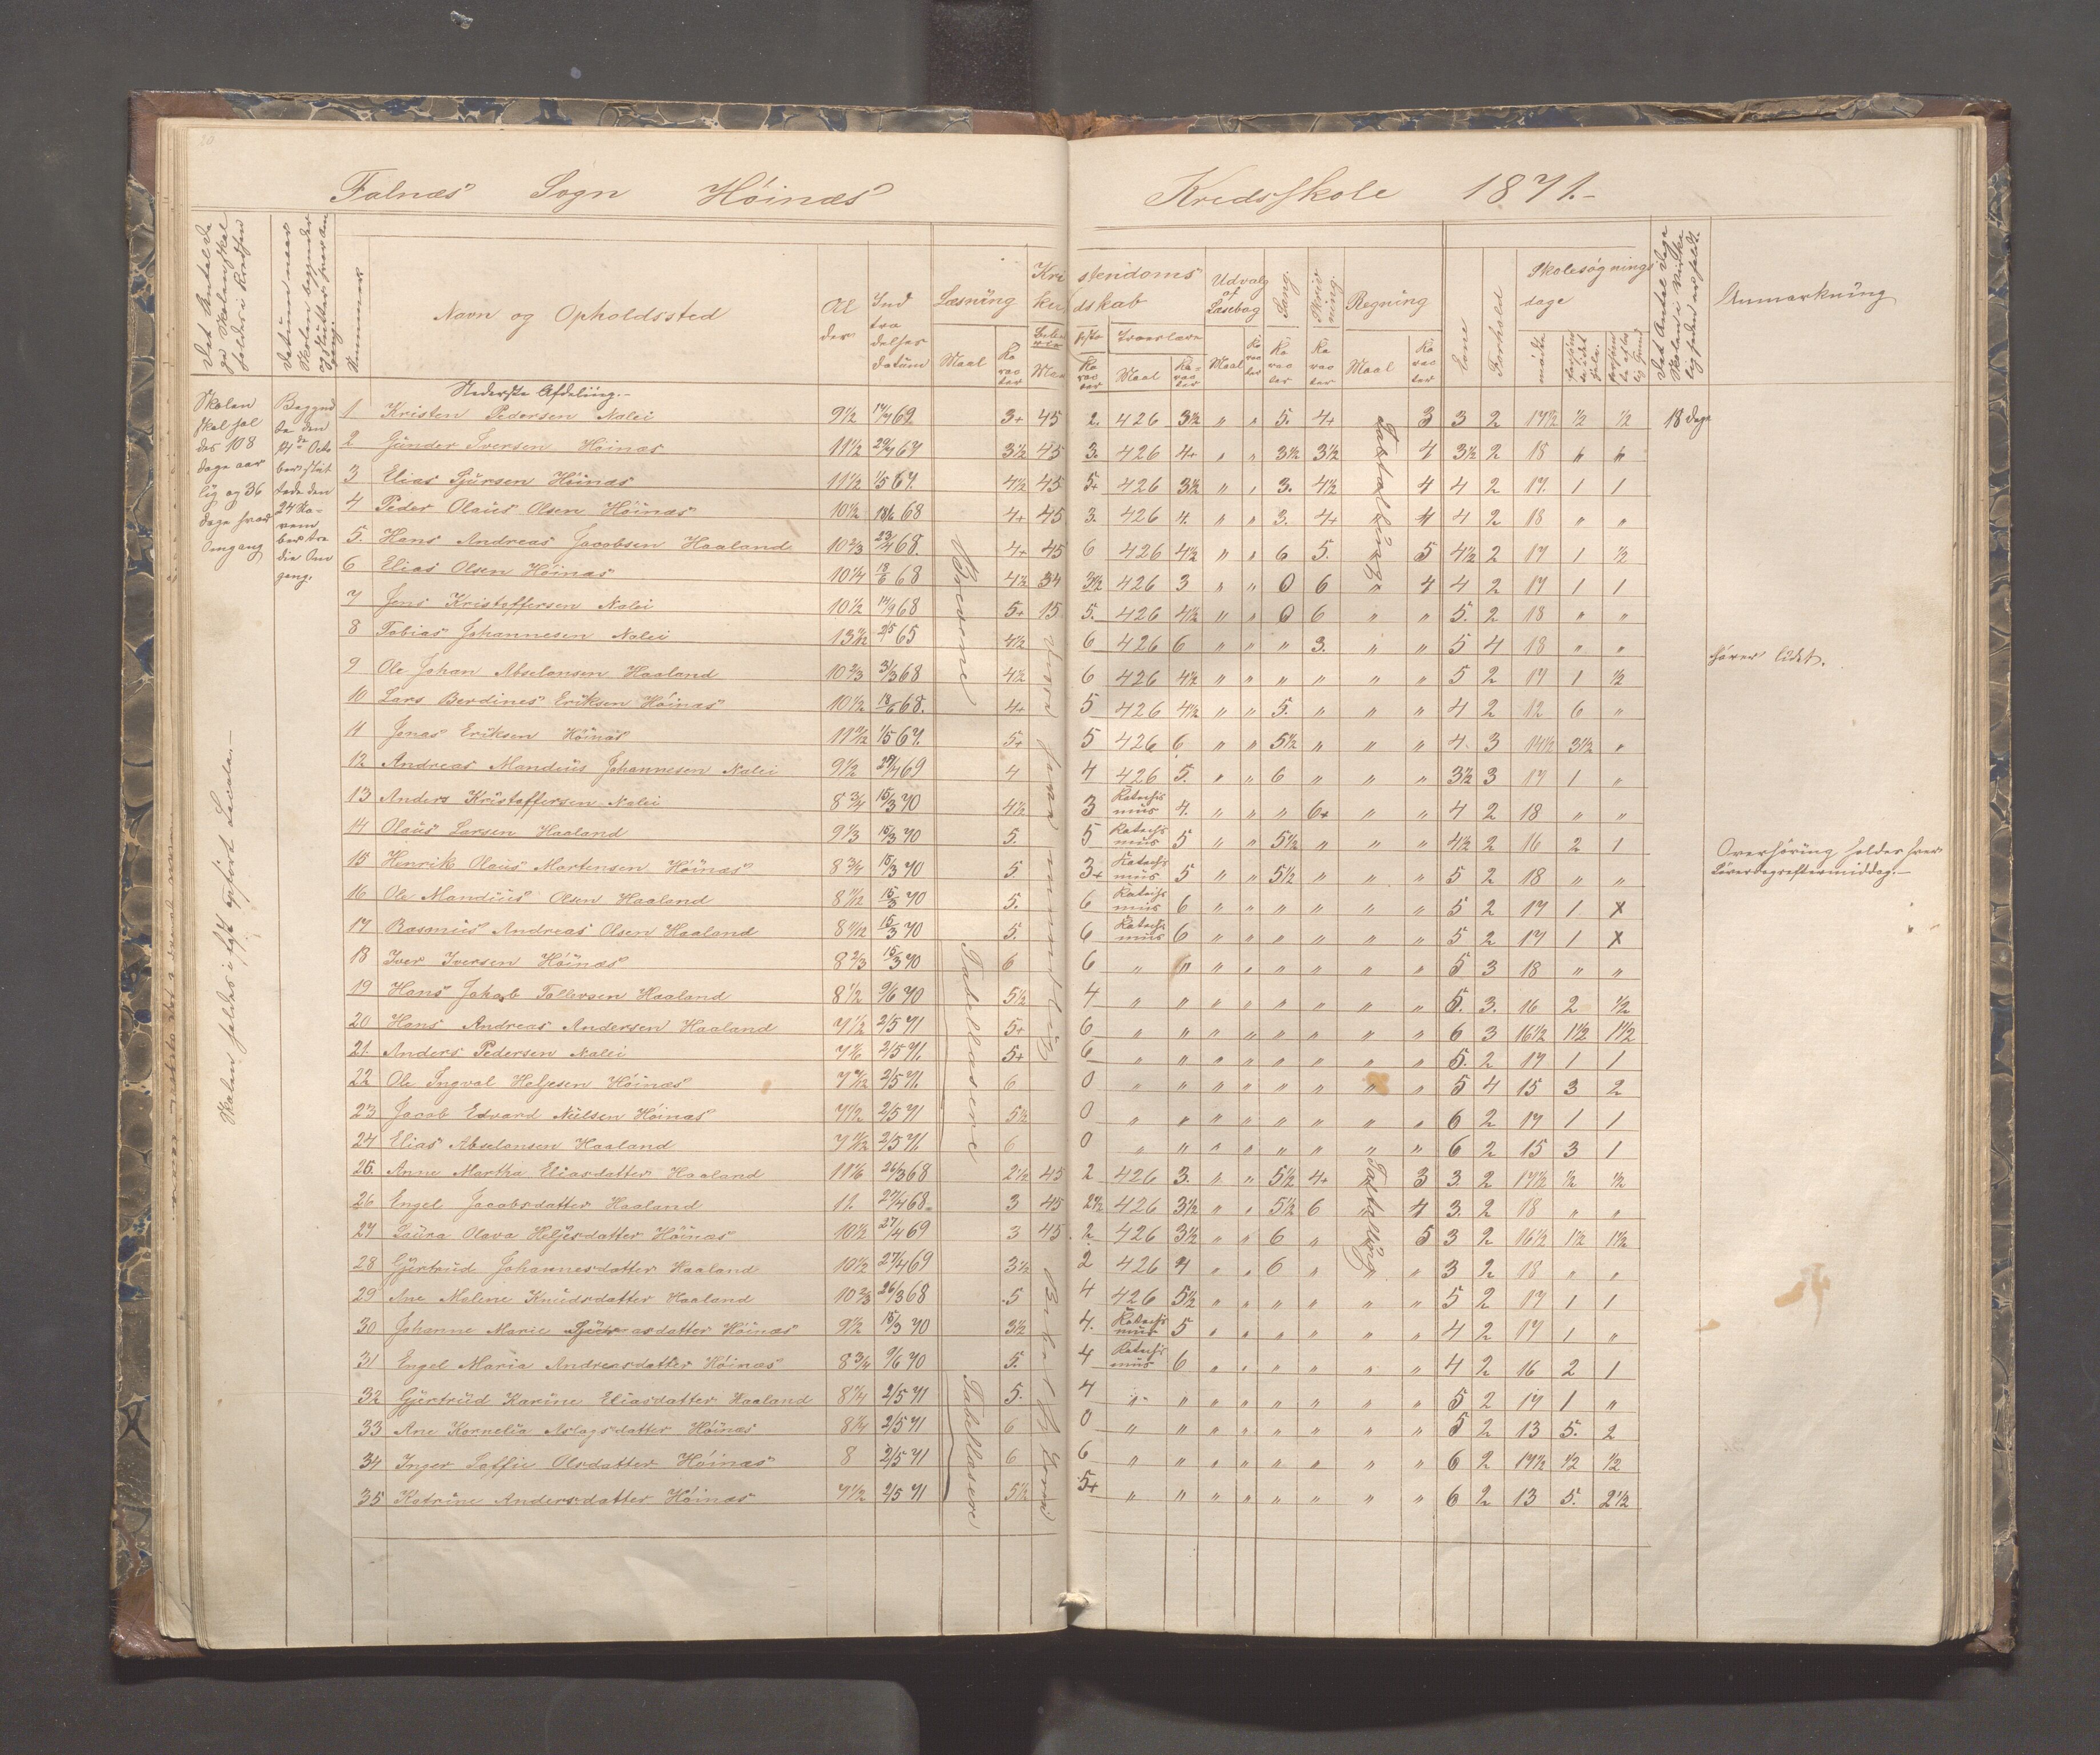 Falnæs Sogn Höinæs Kredsskole 1871.-
Det Antal Dage Skolen skal holdes i Kredsen
Datum naar Skolen begynder og slutter hver Omgang.
Nummer
Navn og Opholdssted
Alder
Indtrædelses datum
Læsning Maal Karacter
Kristendoms Kundskab
Troeslære Maal Karacter
Udvalg af Læsebog Maal Karacter
Sang. Karacter
Skrivning. Karacter
Regning Maal Karacter
Evne
Forhold
Skolesøgnings dage
mødte
Det Antal Dage Skolen i Virkeligheden er holdt.
Anmærkning
Skolen skal holdes 108 dage aarlig og 36 dage hver Omgang
Begyndte den 14de October sluttede den 24 November tredie Omgang.
Skolen holdes i fast opført Locale.—
Nederste Afdeling.-
1 Kristen Pedersen Nalei 9½ 69 3+ 45 2. 426 3½ " " 5. 4+ 3 3 2 17½ ½ ½ 18 dage
2 Gunder Iversen Höinæs 11½ 67 3½ 45 3. 426 4+ " " 3½ 3½ 4 3½ 2 18 " "
3 Elias Sjursen Höinæs 11½ 1/5 67. 4½ 45 5+ 426 3½ " " 3. 4½ 4 4 2 17. 1 1
4 Peder Olaus Olsen Höinæs 10½ 18/6 68 4+ 45 3. 426 4. " " 3. 4+ " 4 4 2 18 " "
5. Hans Andreas Jacobsen Haaland 10⅔ 68. 4+ 45 6 426 4½ " " 6 5. " 5 4½ 2 17 1 ½
6 Elias Olsen Höinæs 10¼ 18/6 68 4½ 34 3½ 426 3 " " 0 6 " 4 4 2 17 1 1
7 Jens Kristoffersen Nalei 10½ 14/9 68 5+ 15 5. 426 4½ " " 0 6 " " 5. 2 18 " "
8 Tobias Johannesen Nalei 2/5 65 4½ 6 426 6 " " " 3. " " 5 4 18 " " hører lidet.
9 Ole Johan Abselonsen Haaland 10⅔ 31/3 68 4½ 6 426 4½ " " " " " " 5 2 17 1 ½
10 Lars Berdines Eriksen Höinæs 10½ 18/6 68. 4+ 5 426 4½ " " 5. " " " 4 2 12 6 "
11 Jonas Eriksen Höinæs 1/5 67. 5+ 5 426 6 " " 5½ " " " 4. 3 14½ 3½ "
12 Andreas Mandius Johannesen Nalei 9½ 27/4 69 4 4 426 5. " " 6 " " " 3½ 3 17 1 "
13 Anders Kristoffersen Nalei 8¾ 15/3 70 4½ 3 Katechismus 4. " " " 6+ " " 4 2 18 " "
14 Olaus Larsen Haaland 9⅓ 15/3 70 5. 5 Katechismus 5 " " 5½ " " " 4½ 2 16 2 1
15 Henrik Olaus Mortensen Höinæs 8¾ 15/3 70 5. 3+ Katechismus 5 " " 5½ " " " 5 2 18 " "
Overhöring holdes hver Löverdagseftermiddag.—
16 Ole Mandius Olsen Haaland 8 11/12 15/3 70 5. 6 Katechismus 6 " " " " " " 5 2 17 1 X
17 Rasmus Andreas Olsen Haaland 8 11/12 15/3 70 5. 6 Katechismus 6 " " " " " " 5 2 17 1 X
18 Iver Iversen Höinæs 8⅔ 15/3 70 6 6 " " " " " " " " 5 3 18 " "
19 Hans Jakob Tollersen Haaland 8½ 9/6 70 5½ 4 " " " " " " " " 5. 3. 16 2 ½
20 Hans Andreas Andersen Haaland 7½ 2/5 71 5+ 6 " " " " " " " " 6 3 16½ 1½ 1½
21. Anders Pedersen Nalei 2/5 71. 5+ 6 " " " " " " " " 5. 2 17 1 1
22 Ole Ingval Heljesen Höinæs 2/5 71. 6 0 " " " " " " " " 5 4 15 3 2
23 Jacob Edvard Nielsen Höinæs 7½ 2/5 71 5½ 0 " " " " " " " " 6 2 17 1 1
24 Elias Abselonsen Haaland 2/5 71. 6 0 " " " " " " " " 6 2 15 3 1
25. Anne Martha Eliasdatter Haaland 11⅙ 26/3 68 2½ 45 2 426 3. " " 5½ 4+ 3 3. 2 17½ ½ ½
26 Engel Jacobsdatter Haaland 11. 27/4 68. 3 45 2½ 426 3½ " " 5½ 6 " 4 3. 2 18 " "
27 Laura Olava Heljesdatter Höinæs 10½ 27/4 69 3 45 2 426 3½ " " 6 " 5 3 2 16½ 1½ 1½
28 Gjertrud Johannesdatter Haaland 10½ 27/4 69 3½ 2 426 4 " " 6 " " " 3 2 18 " "
29 Ane Malene Knudsdatter Haaland 10⅔ 26/3 68 5 4 426 5½ " " " " " " 5 2 17 1 1
30 Johanne Marie Sjursdatter Höinæs 9½ 15/3 70 3½ 4. Katechismus 5 " " " " " " 4 2 17 1 "
31 Engel Maria Andreasdatter Höinæs 8¾ 9/6 70 5. 4 Katechismus 6 " " " " " " 4 2 16 2 1
32 Gjertrud Karine Eliasdatter Haaland 8¼ 2/5 71 5. 4 " " " " " " " " 5 2 17 1 "
33 Ane Kornelia Aslagsdatter Höinæs 8¼ 2/5 71 6 0 " " " " " " " " 5 2 13 5. 2
34 Inger Soffie Olsdatter Höinæs 8 2/5 71 6 6 " " " " " " " " 6 2 17½ ½ ½
35 Katrine Andersdatter Höinæs 7½ 2/5 71 5½ 5+ " " " " " " " " 6 2 13 5. 2½
Tabellæsere
Tabellæsere